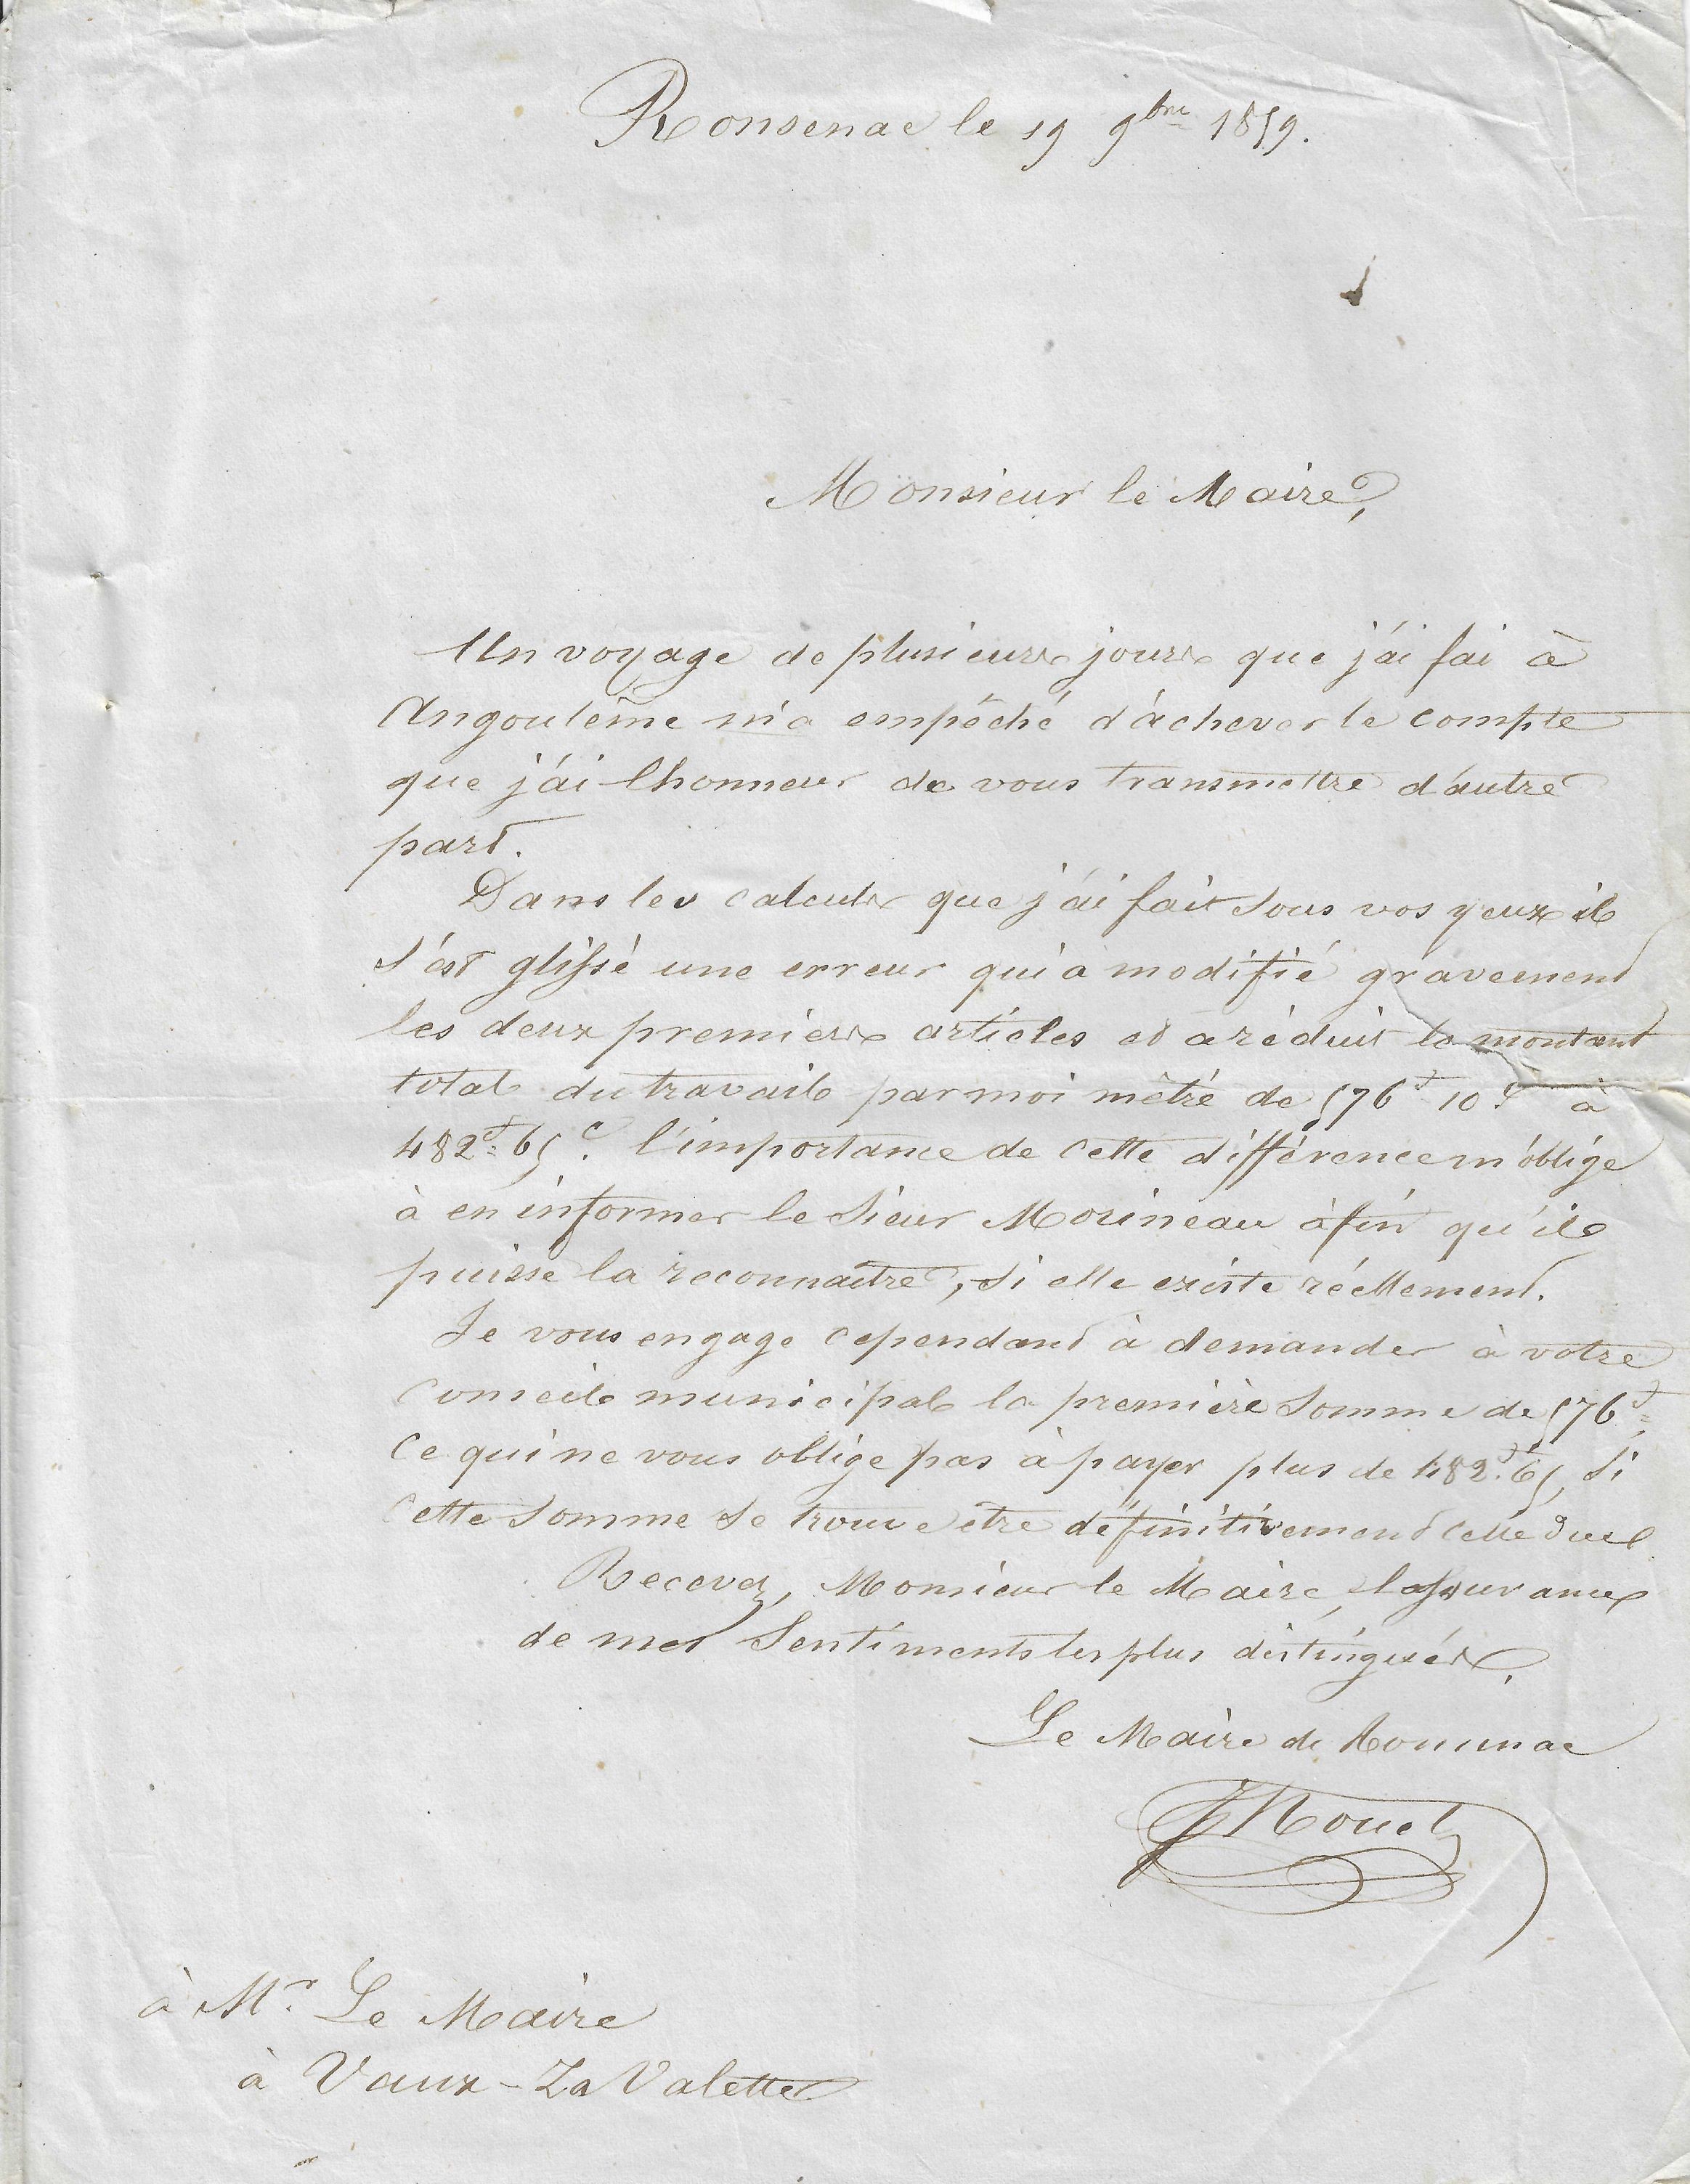 Ronsenac le 19 9bre 1859.
Monsieur le Maire,
Un voyage de plusieurs jours que j'ai fai à
Angoulême m'a empêché d'achever le compte
que j'ai lhonneur de vous transmettre d'autre
part.
Dans les calculs que j'ai fait sous vos yeux il
s'est glissé une erreur qui a modifié gravement
les deux premiers articles et a réduit le montant
total du travail par moi métré de 576f 10c à
482f 65c. l'importance de cette différence m'oblige
à en informer le Sieur Morineau afin qu'il
puisse la reconnaître, si elle existe réellement.
Je vous engage cependant à demander à votre
conseil municipal la première somme de 576f
ce qui ne vous oblige pas à payer plus de 482f.65, si
cette somme se trouve être définitivement celle due
Recevez, Monsieur le Maire, l'assurance
de mes sentiments les plus distingués.
Le Maire de Ronsenac
à Mr. Le Maire
à Vaux-La Valette